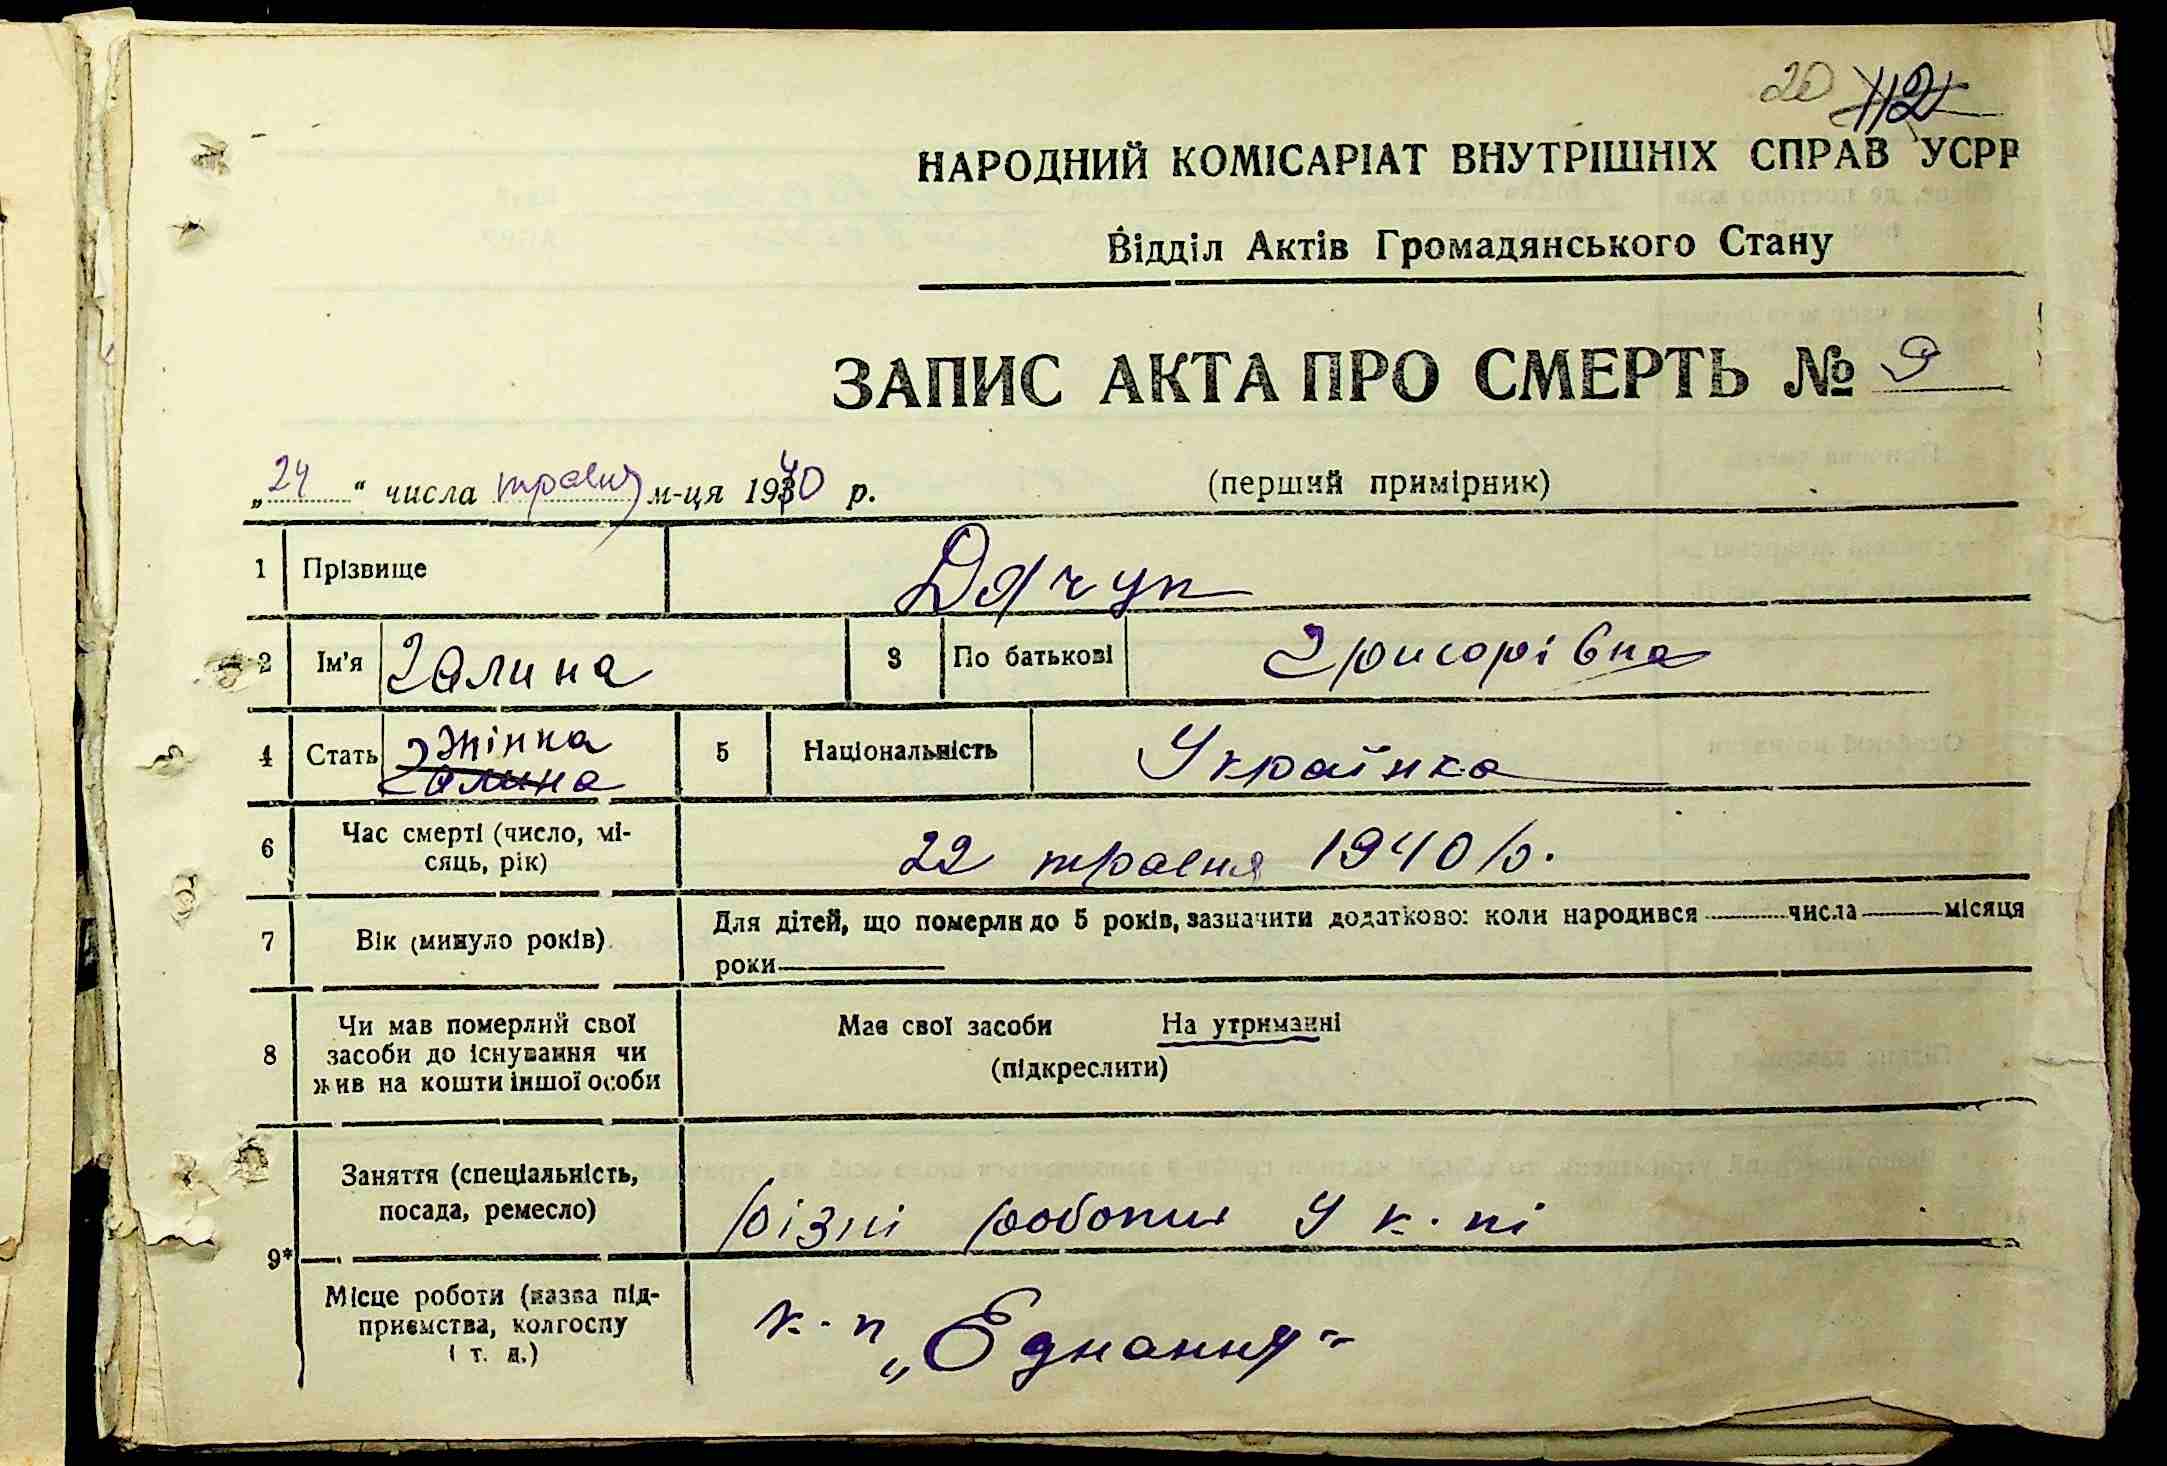 20 112
НАРОДНИЙ КОМІСАРІАТ ВНУТРІШНІХ СПРАВ УСРР
Відділ Актів Громадянського Стану
ЗАПИС АКТА ПРО СМЕРТЬ № 9
„24“ числа травня м-ця 1940 р. (перший примірник)
1 Прізвище Дячук
2 Ім'я Галина 3 По батькові Григорівна
4 Стать Жінка Галина 5 Національність Українка
6 Час смерті (число, мі-
сяць, рік) 22 травня 1940 р.
7 Вік (минуло років) Для дітей, що померли до 5 років, зазначити додатково: коли народився числа місяця
роки
8 Чи мав померлий свої
засоби до існування чи
жив на кошти іншої особи
Має свої засоби На утриманні
(підкреслити)
9* Заняття (спеціальність,
посада, ремесло) різні роботи у к.пі
Місце роботи (назва під-
приємства, колгоспу
і т. д.) к.п „Єднання"